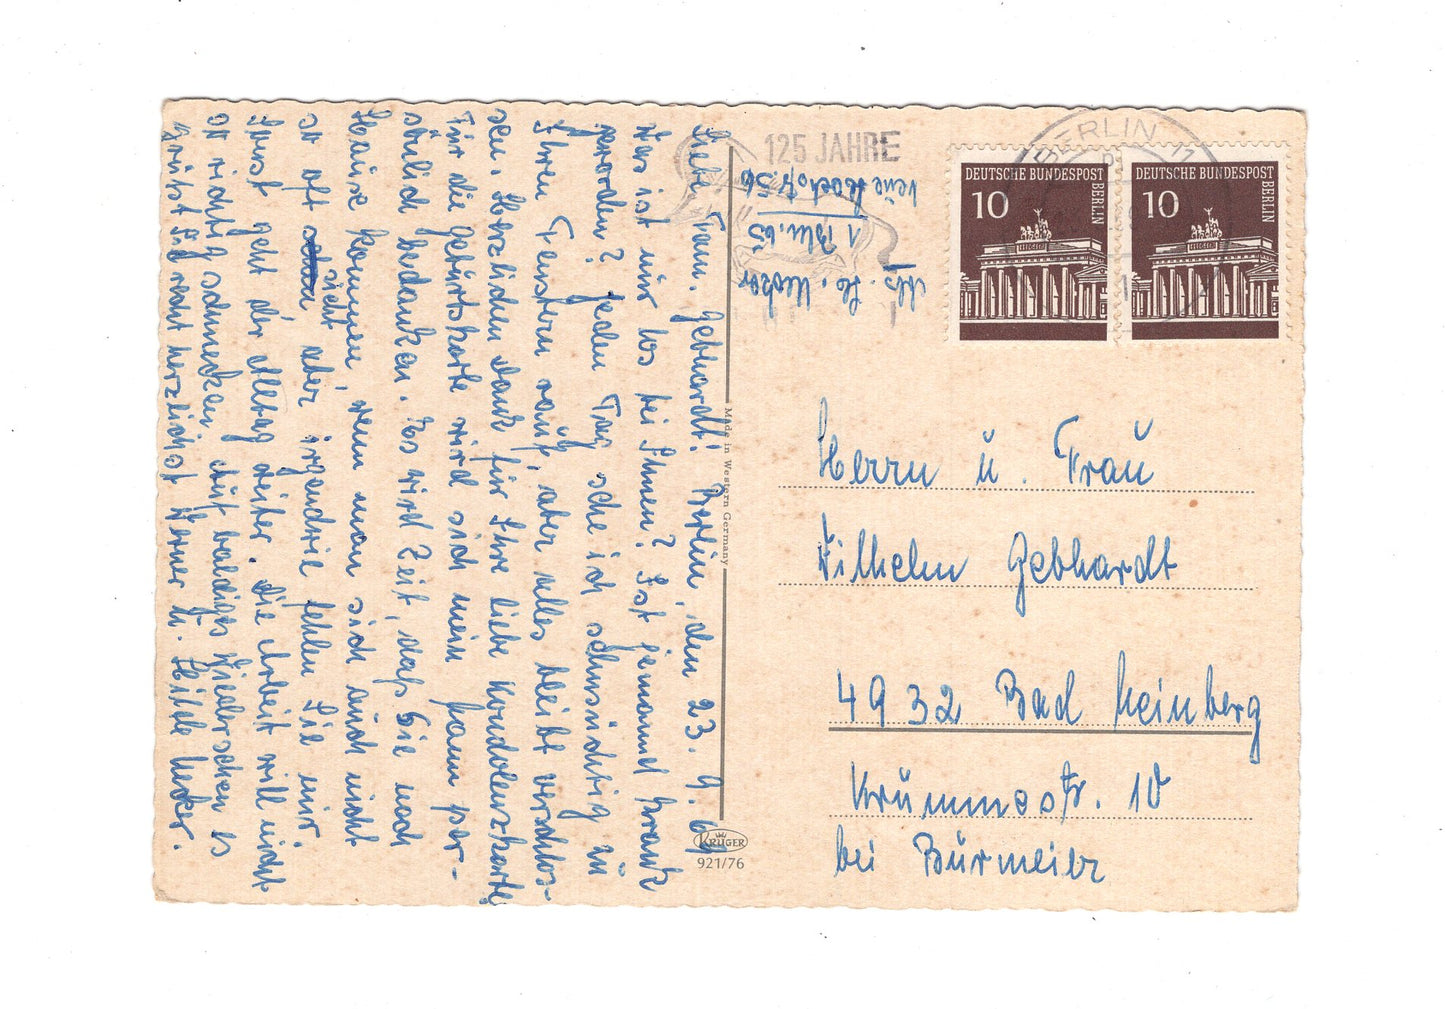 Liebe Fam. Gebhardt! Berlin, den 23. 9. 69
Was ist nur los bei Ihnen? Ist jemand krank
geworden? Jeden Tag sehe ich sehnsüchtig zu
Ihren Fenstern rauf, aber alles bleibt verschlos-
sen. Herzlichen Dank für Ihre liebe Kondolenzkarte
Für die Geburtskarte wird sich mein Mann per-
sönlich bedanken. Es wird Zeit, daß Sie nach
Hause kommen, wenn man sich auch nicht
so oft
nicht aber irgendwie fehlen Sie mir.
Sonst geht der Alltag weiter. Die Arbeit will nicht
so richtig schmecken. Auf baldiges Wiedersehen es
grüßt Sie recht herzlichst
Made in Western Germany
KRÜGER
921/76
125 JAHRE
Abs.
1 Bln. 65
BERLIN 11
DEUTSCHE BUNDESPOST
BERLIN
10
DEUTSCHE BUNDESPOST
BERLIN
10
Herrn u. Frau
Wilhelm Gebhardt
4932 Bad Meinberg
Krummestr. 10
bei Burmeier